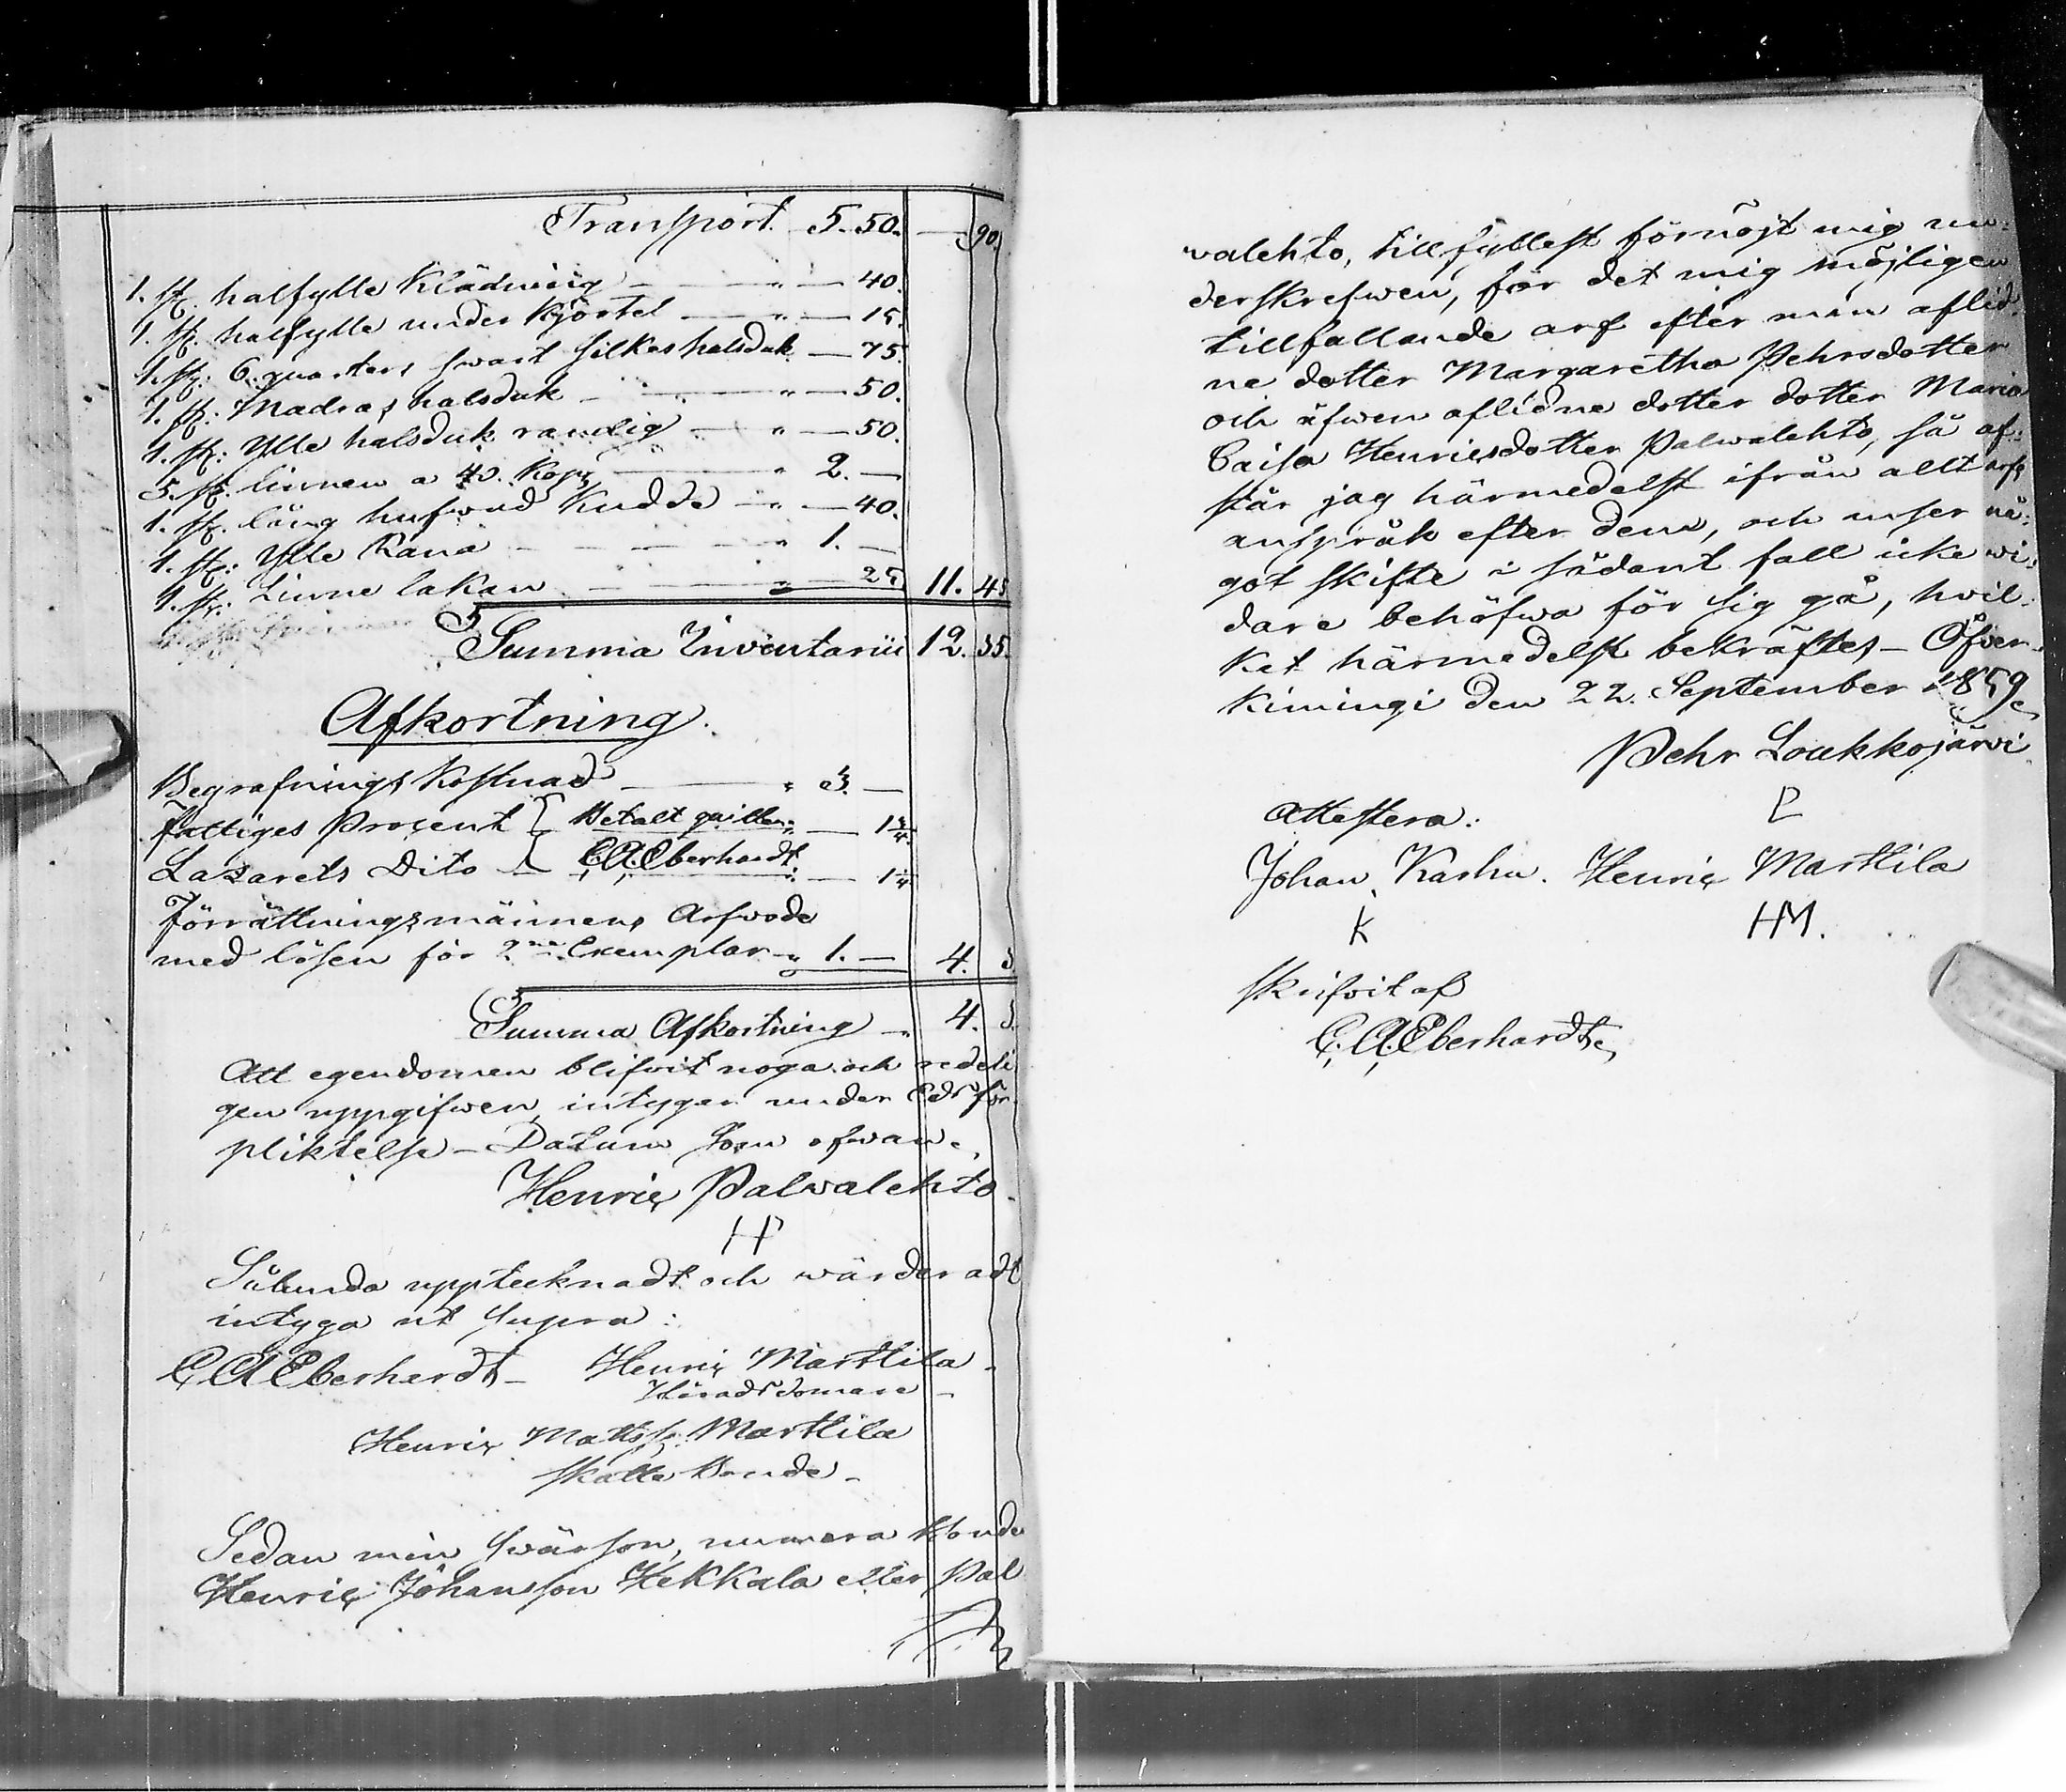 Transport. 5. 50. — 90.
1. st. halfylle Klädning — " — 40.
1. st. halfylle under Kjortel — " — 15.
1. st: 6. quarters swart silkes halsduk — 75.
1. st: Madras halsduk — " — 50.
1. st: Ylle halsduk randig — " — 50.
5. st. linnen a 40. Kop — " 2. —
1. st. lång hufwud Kudde — " — 40.
1. st: Ylle Rana — " 1. —
1. st: Linne lakan — " — 25. 11. 45
Summa Inventarii 12. 35.
Afkortning.
Begrafnings Kostnad — " 3. —
Fattiges Procent { Betalt qvitt — 1¼
Lazarets Dito { C. A. Eberhardt — 1¼
Förrättningsmännens Arfwode
med lösen för 2ne Exemplar " 1. — 4.
Summa Afkortning — 4.
Att egendomen blifvit noga och redeli
gen uppgifwen, intygar under Eds för
pliktelse — Datum som ofwan.
Henric Palwalehto.
HP
Sålunda upptecknadt och wärderadt
intyga ut supra:
C A Eberhardt — Henric Marttila
Häradsdomare —
Henric Matts Marttila
Skatte Bonde —
Sedan min swärson, numera Bonde
Henric Johansson Hekkala eller Pal
walehto, tillfyllest förnöjt mig un:
derskrefwen, för det mig möjligen
tillfallande arf efter min aflid:
ne dotter Margaretha Pehrsdotter
och äfwen aflidne dotter dotter Maria
Caisa Henricsdotter Palwalehto, så af:
står jag härmedelst ifrån allt arfs
anspråk efter dem, och anser nå:
got skifte i sådant fall icke wi:
dare behöfwa för sig gå, hvil:
ket härmedelst bekräftes — Öfver
Kimingi den 22. September 1859.
Pehr Loukkojärwi.
Attestera: P L
Johan Karhu. Henric Marttila
K HM.
Skrifvit af
C. A. Eberhardt.